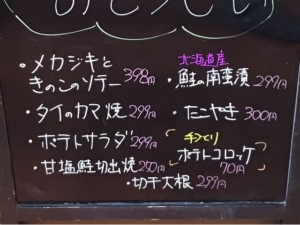 ・メカジキと
きのこのソテー 398円
・タイのカマ焼 299円
・ポテトサラダ 299円
・甘塩鮭切出焼 250円
北海道産
・鮭の南蛮漬 299円
・たこやき 300円
手づくり
ポテトコロッケ
70円
・切干大根 299円